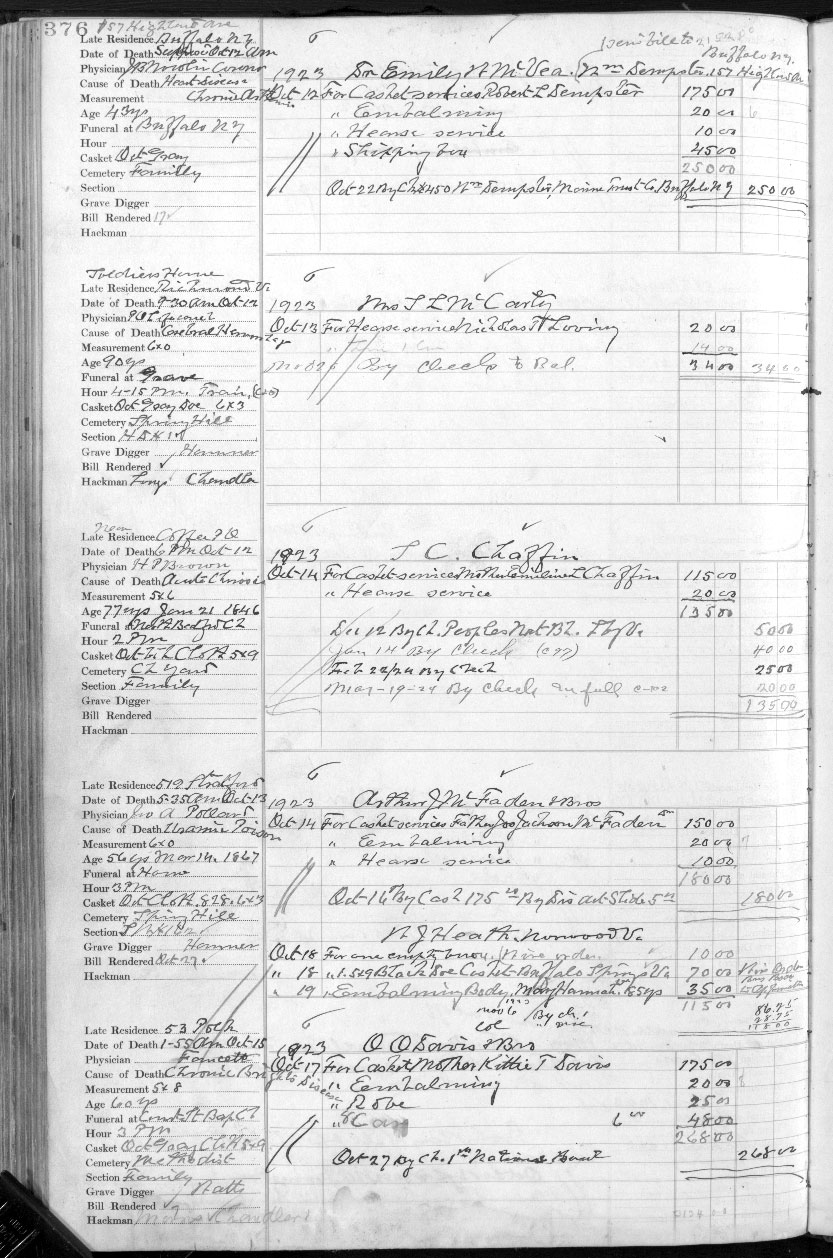 376 157 Highland Ave
Late Residence Buffalo N.Y.
Date of Death Oct 12 am
Physician Coroner
Cause of Death Heart Disease
Measurement Chronic
Age 43 ys
Funeral at Buffalo N Y
Hour
Casket Oct Gray
Cemetery Family
Section
Grave Digger
Bill Rendered
Hackman
Buffalo N.Y.
1923 Dr Emily N McVea. Wm Dempster 157 Highland Ave
Oct 12 For Casket services Robert L Dempster 175 00
" Eembalming 20 00
" Hearse service 10 00
" Shipping box 45 00
250 00
Oct 22 By Ch Wm Dempster, Marine Trust Co. Buffalo N Y 250 00
Soldiers Home
Late Residence Richmond Va.
Date of Death 9-30 am Oct-12
Physician
Cause of Death Cerebral Hemorrhage
Measurement 6x0
Age 90 ys
Funeral at Grave
Hour 4-15 Pm. Train, (C&O)
Casket Oct Gray Doe 6x3
Cemetery Spring Hill
Section
Grave Digger Hamner
Bill Rendered ✓
Hackman Chandler
1923 Mrs S L McCarty
Oct 13 For Hearse service Nicholas H Loving 20 00
14 00
By Check to Bal. 34 00 34 00
near
Late Residence Coffee P O
Date of Death 6 Pm Oct-12
Physician H P Brown
Cause of Death Acute
Measurement 5x6
Age 77 ys Jan 21 1846
Funeral North Bedford Ch
Hour 2 Pm
Casket Oct Cloth 5x9
Cemetery Ch Yard
Section Family
Grave Digger
Bill Rendered
Hackman
1923 S C. Chaffin
Oct-14 For Casket services Mother Emiline L Chaffin 115 00
" Hearse service 20 00
135 00
Dec 12 By Ch. Peoples Nat Bk. Lbg Va. 50 00
Jan 14 By Check 40 00
Feb 22/24 By Check 25 00
Mar-19-24 By Check in full 20 00
135 00
Late Residence 519
Date of Death 5-35 am Oct-13
Physician Jno A Pollard
Cause of Death Uramic Poison
Measurement 6x0
Age 56 ys Mar 14. 1867
Funeral at Home
Hour 3 Pm
Casket Oct Cloth 828. 6x3
Cemetery Spring Hill
Section
Grave Digger Hamner
Bill Rendered Oct 27
Hackman
1923 Arthur J McFaden & Bros
Oct 14 For Casket services Father Jackson McFaden 150 00
" Eembalming 20 00
" Hearse service 10 00
180 00
Oct 16 By Cash 175 00 By Dis 180 00
N J Heath. Norwood Va.
Oct 18 For one empty box. 10 00
" 18 " 1.529 Black Doe Casket-Buffalo Springs Va 70 00
" 19 " Eembalming Body. Mary Hannah 85 ys 35 00
115 00
1923
Nov 6 By ch. 86.25
28.75
115 00
Late Residence 53 Polk
Date of Death 1-55 am Oct-15
Physician Fawcett
Cause of Death Chronic Brights Disease
Measurement 5x8
Age 60 ys
Funeral at Court St Baptist
Hour 3 Pm
Casket Oct Gray Cloth 5x9
Cemetery Methodist
Section Family
Grave Digger Watts
Bill Rendered
Hackman
1923 O O Davis & Bro
Oct 17 For Casket Mother Kittie T Davis 175 00
" Eembalming 20 00
" Robe 25 00
" 8 Cars 6 00 48 00
268 00
Oct 27 By Ch. 1st National Bank 268 00